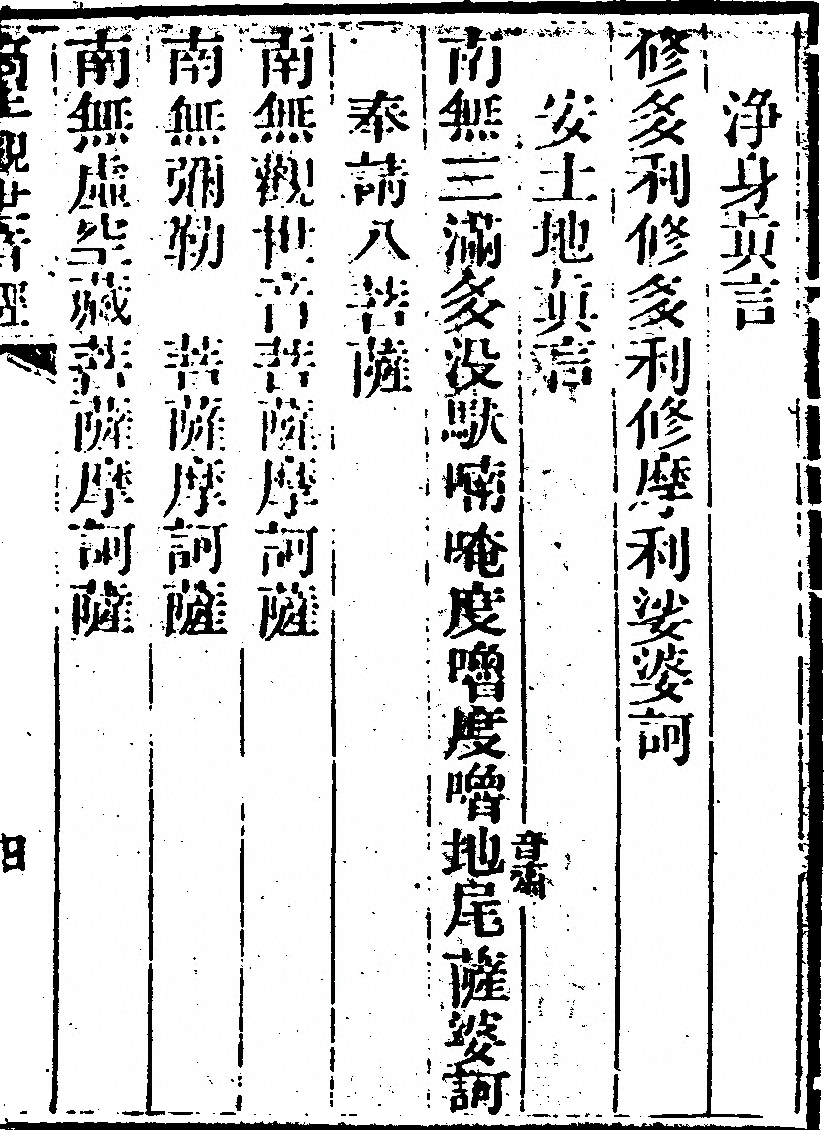 淨身真言
修多利修多利修摩利娑婆訶
安土地真言
南無三滿多没馱喃唵度嚕度嚕地尾薩婆訶
音
奉請八菩薩
南無觀世音菩薩摩訶薩
南無彌勒　菩薩摩訶薩
南無虛空藏菩薩摩訶薩
高王觀世音經
四